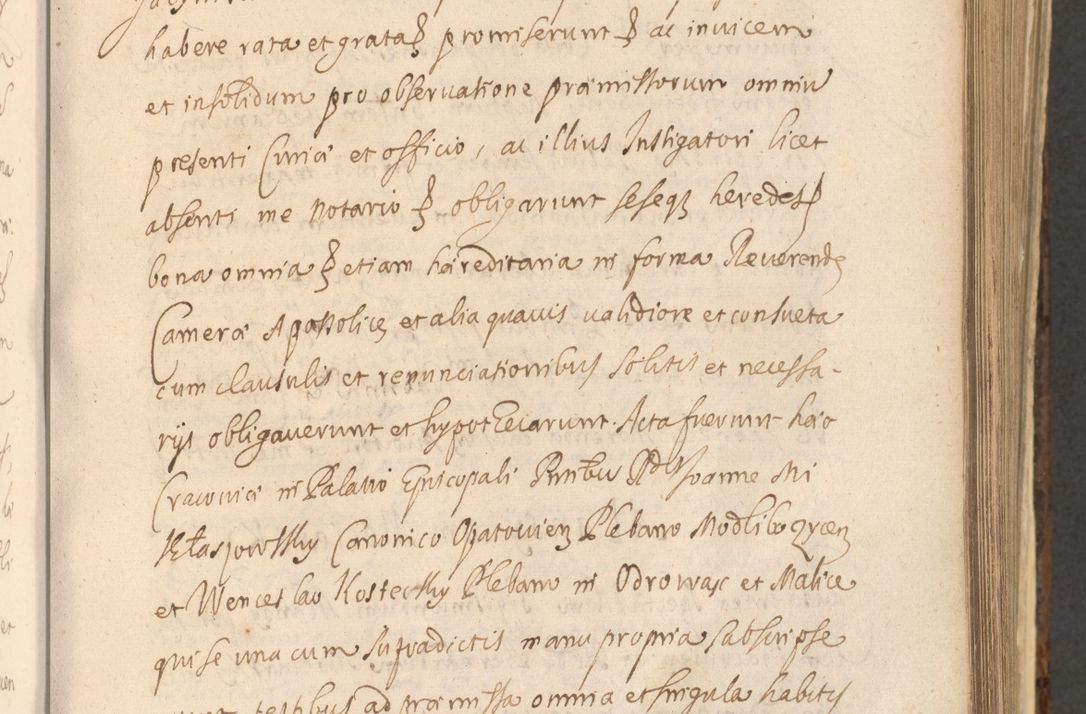 habere rata et grata promiserunt ac inuicem
et insolidum pro obseruatione præmissorum omniu
presenti Curiæ et officio, ac illius Instigatori licet
absenti me Notario obligarunt seseqȝ heredes
bona omnia etiam hæreditaria in forma Reuerendæ
Cameræ Apostolicę et alia quauis validiore et consueta
cum clausulis et renunciationibus solitis et necessa-
rijs obligauerunt et hypothecarunt. Acta fuerunt hæc
Cracouiæ in Palatio Episcopali Pntibu Rdis Joanne Mi
Canonico Opatouien Plebano Modlibozycen
et Wenceslao Kostecky Plebano in Odrowasc et Malice
qui se una cum supradictis manu propria subscripse
testibus ad præmissa omnia et singula habitis